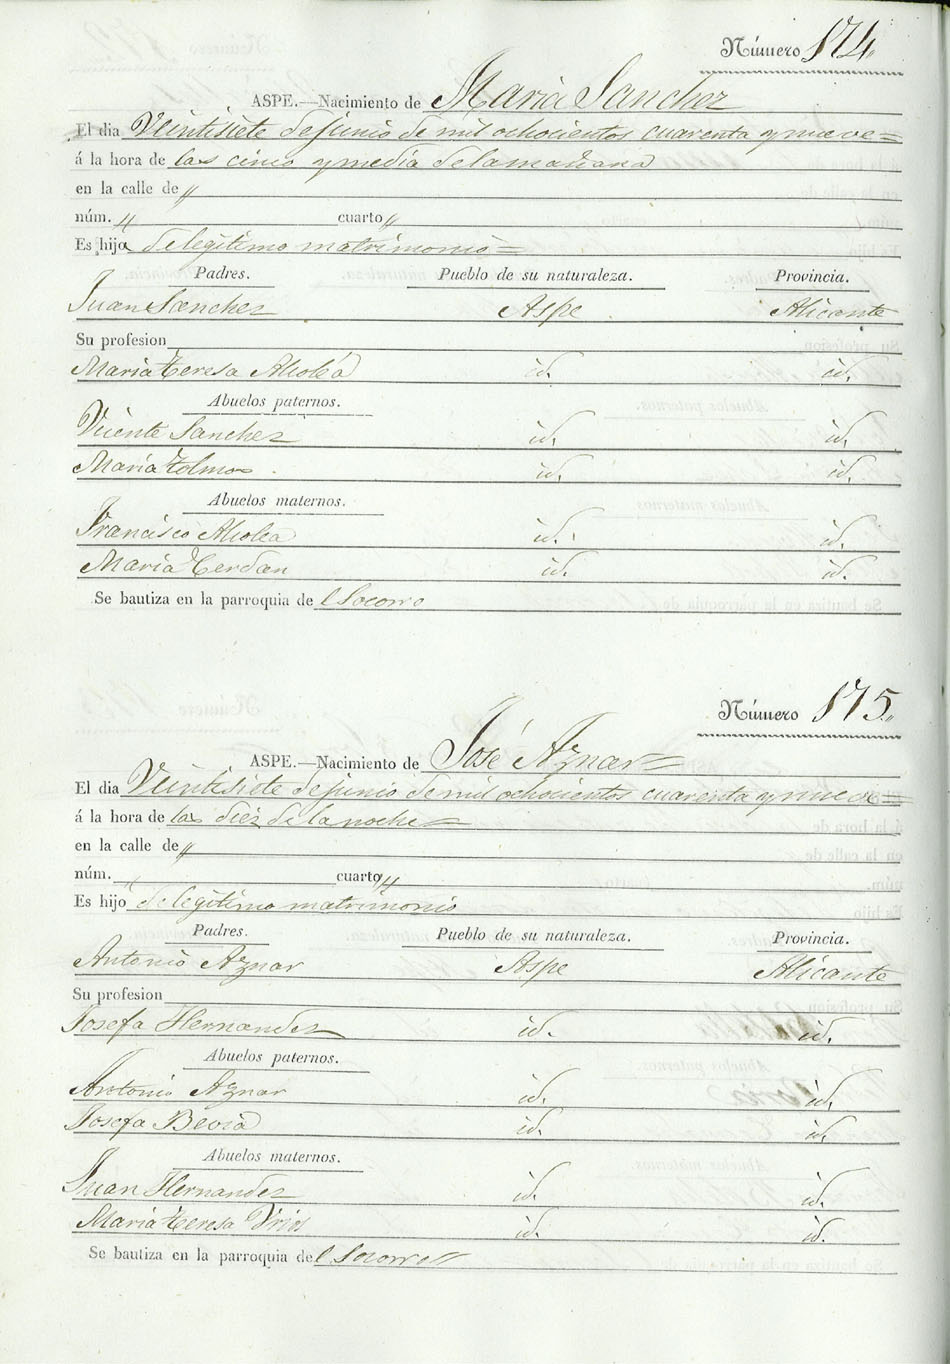 Número 174.
ASPE.—Nacimiento de Maria Sanchez
El dia Veintisiete de junio de mil ochocientos cuarenta y nueve=
á la hora de las cinco y media de la mañana
en la calle de "
núm. " cuarto "
Es hija de legitimo matrimonio=
Padres. Pueblo de su naturaleza. Provincia.
Juan Sanchez Aspe Alicante
Su profesion
Maria Teresa id. id.
Abuelos paternos.
Vicente Sanchez id. id.
Maria Tolmo id. id.
Abuelos maternos.
Francisco id. id.
Maria Cerdan id. id.
Se bautiza en la parroquia del Socorro
Número 175.
ASPE.—Nacimiento de José Aznar=
El dia Veintisiete de junio de mil ochocientos cuarenta y nueve=
á la hora de las diez de la noche=
en la calle de "
núm. " cuarto "
Es hijo de legitimo matrimonio
Padres. Pueblo de su naturaleza. Provincia.
Antonio Aznar Aspe Alicante
Su profesion
Josefa Hernandez id. id.
Abuelos paternos.
Antonio Aznar id. id.
Josefa Bevia id. id.
Abuelos maternos.
Juan Hernandez id. id.
Maria Teresa Urios id. id.
Se bautiza en la parroquia del Socorro "